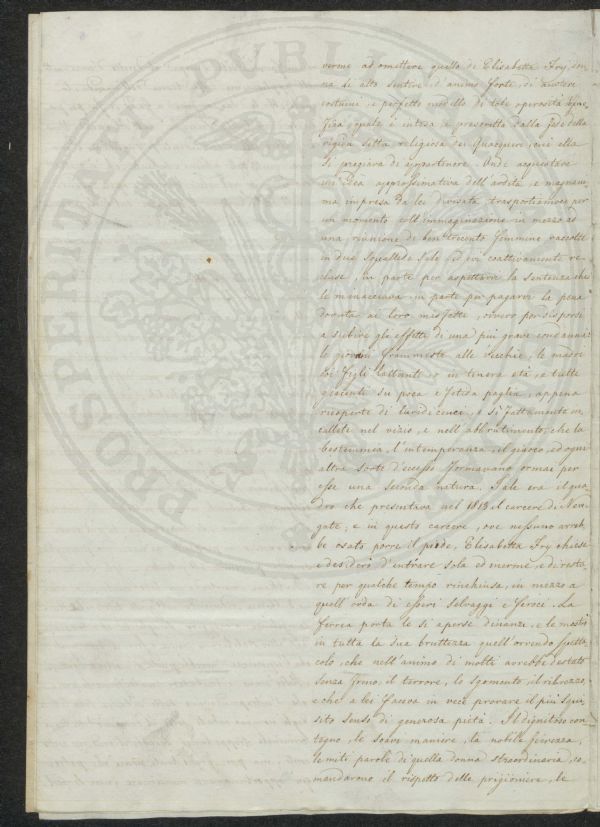 PROSPERITATI PUBLICAE
verme ad omettere quello di Elisabetta Fry, don
na di alto sentire, d'animo forte, di austeri
costumi e perfetto modello di tale operosità bene
fica, quale è intesa e prescritta dalla fede della
rigida setta religiosa dei Quacqueri, cui ella
si pregiava di appartenere. Onde acquistare
un'idea approssimativa dell'ardita e magnani
ma impresa da lei divisata, trasportiamoci per
un momento coll'immaginazione in mezzo ad
una riunione di ben trecento femmine raccolte
in due squallide sale, ed ivi coattivamente re
cluse, in parte per aspettarvi la sentenza che
le minacciava, in parte per pagarvi la pena
dovuta ai loro misfatti, ovvero per disporsi
a subire gli effetti di una più grave condanna:
le giovani frammiste alle vecchie, le madri
coi figli lattanti o in tenera età, e tutte
giacenti su poca e fetida paglia, appena
ricoperte di luridi cenci, e sì fattamente in
callite nel vizio, e nell'abbrutimento, che la
bestemmia, l'intemperanza, il giuoco, ed ogni
altra sorte d'eccesso formavano ormai per
esse una seconda natura. Tale era il qua
dro che presentava nel 1813 il carcere di New
gate; e in questo carcere, ove nessuno avreb
be osato porre il piede, Elisabetta Fry chiese
e desiderò d'entrare sola ed inerme, e di resta
re per qualche tempo rinchiusa, in mezzo a
quell'orda di esseri selvaggi e feroci. La
ferrea porta le si aperse dinanzi, e le mostrò
in tutta la sua bruttezza quell'orrendo spetta
colo, che nell'animo di molti avrebbe destato
senza freno, il terrore, lo sgomento, il ribrezzo,
e che a lei faceva in vece provare il più squi
sito senso di generosa pietà. Il dignitoso con
tegno, le soavi maniere, la nobile fierezza,
le miti parole di quella donna straordinaria, co
mandarono il rispetto delle prigioniere, le